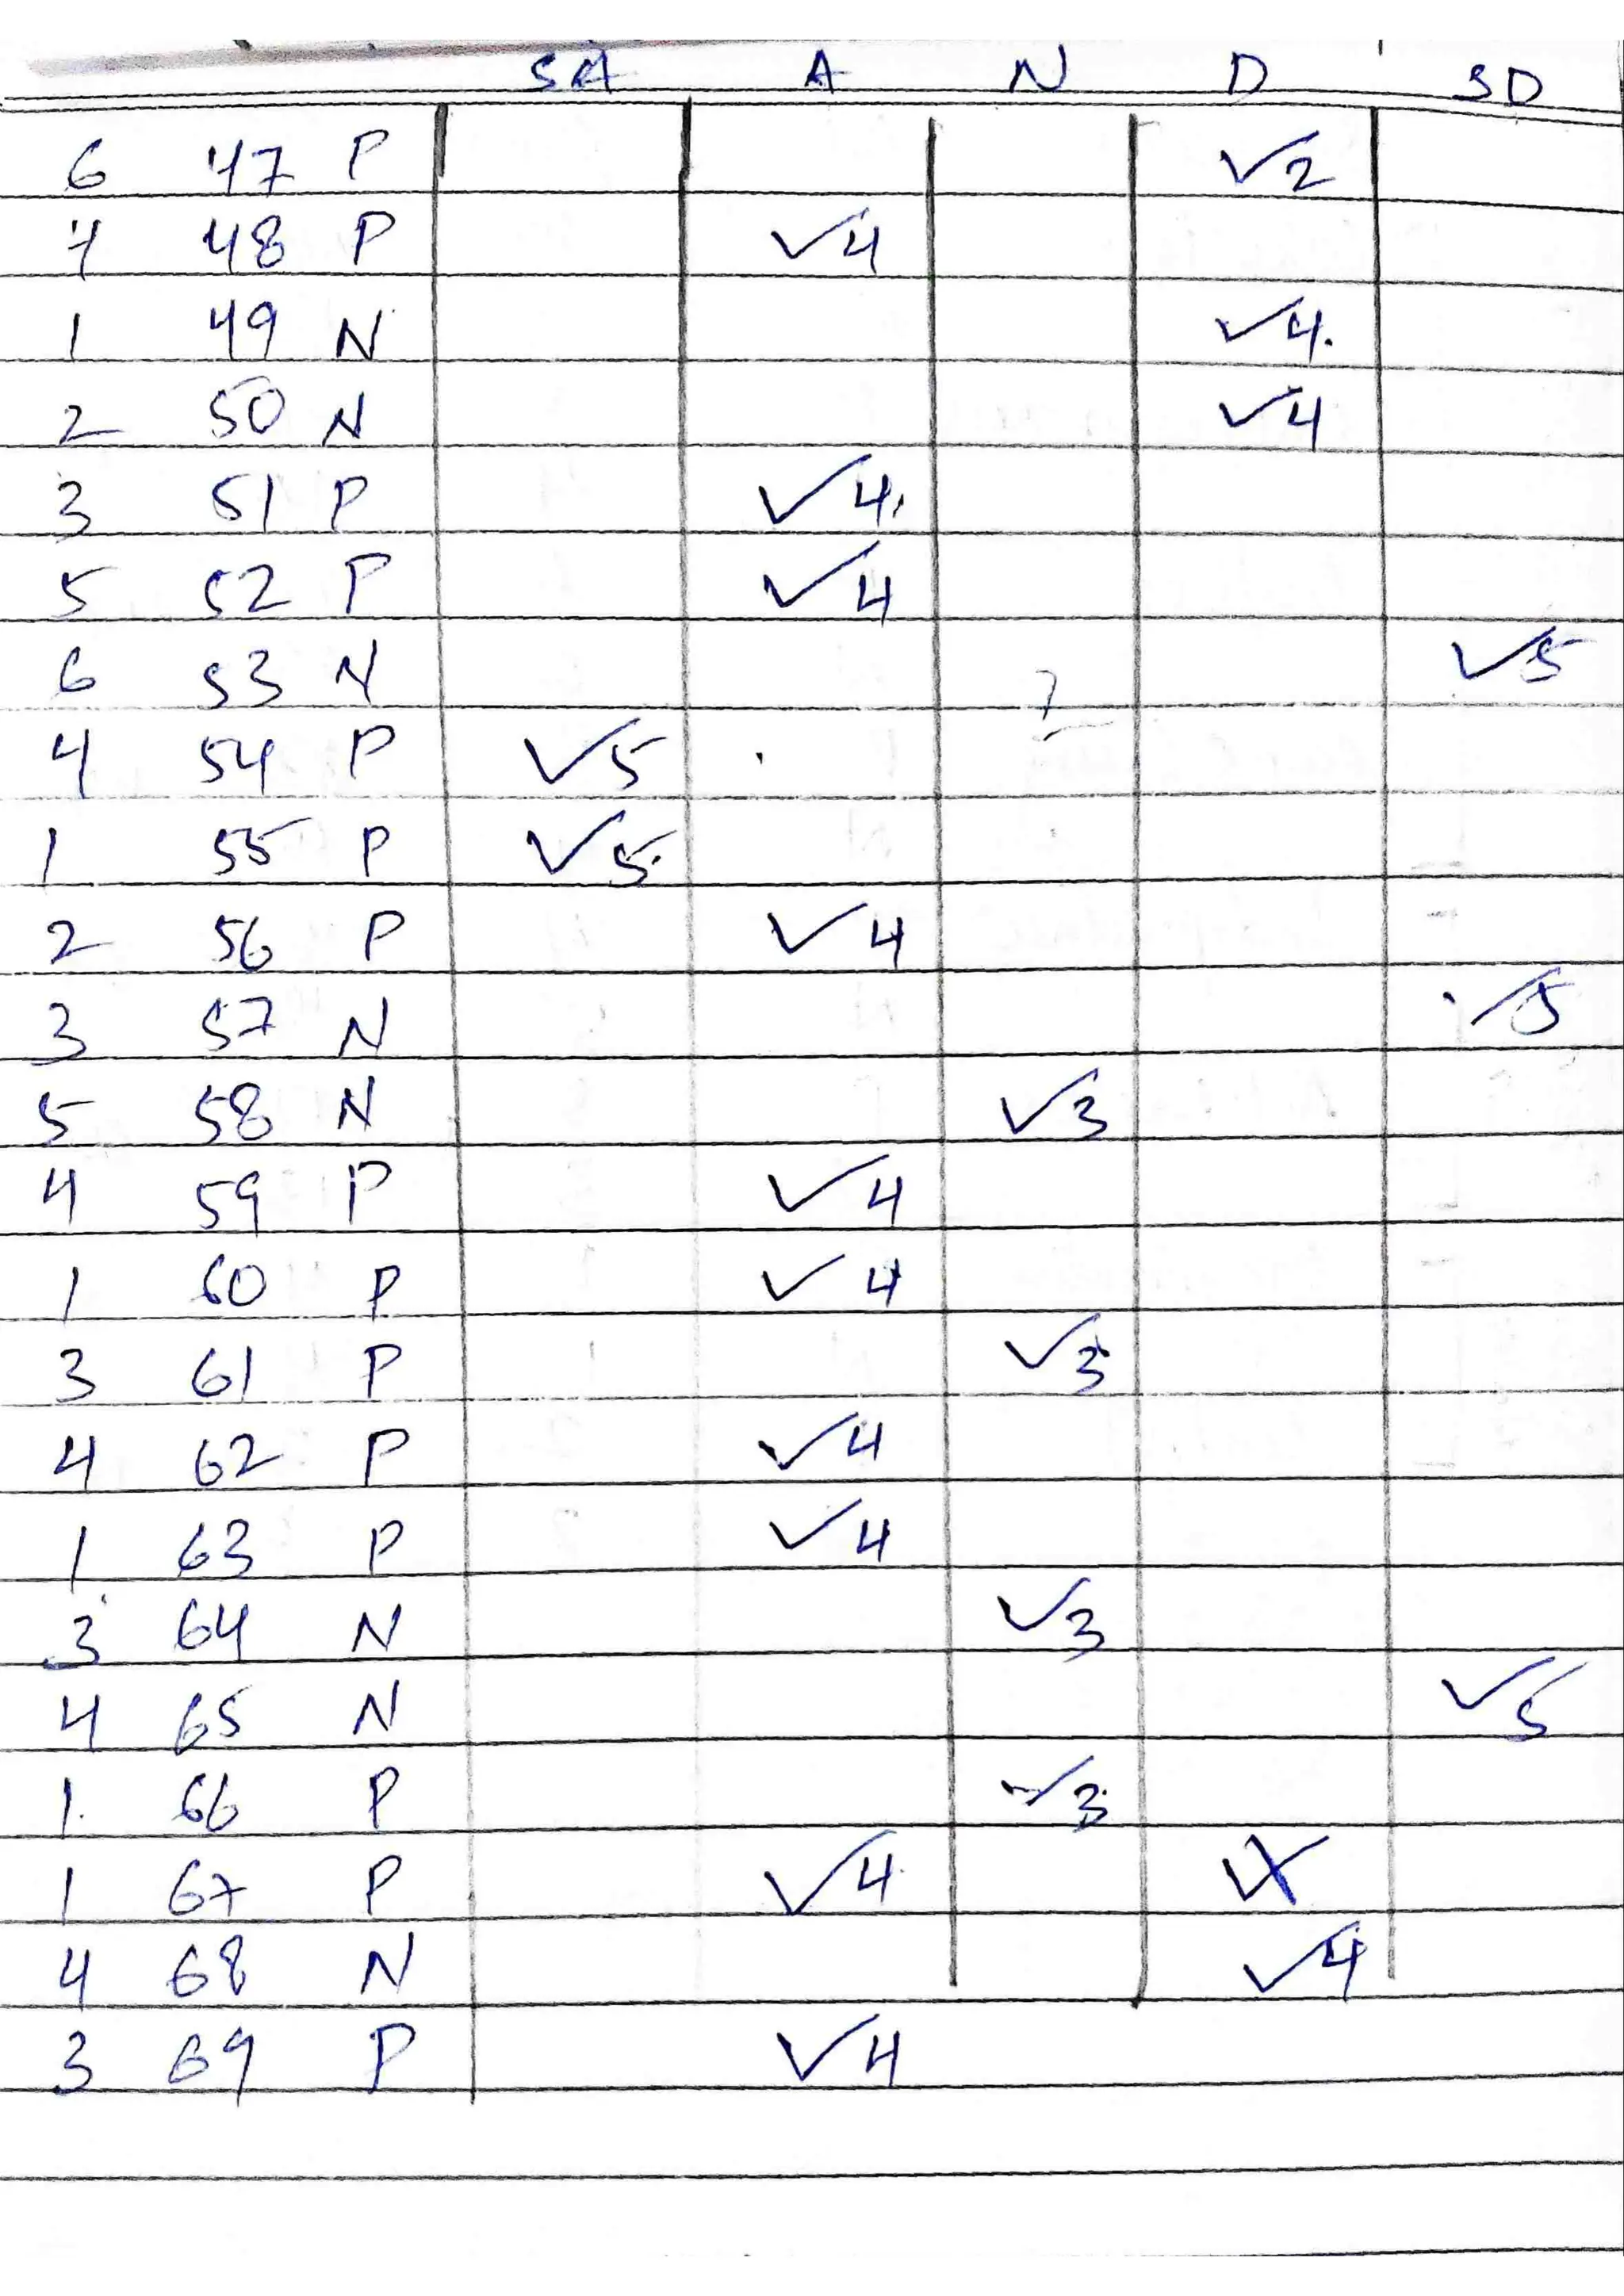 SA A N D SD
6 47 P ✓2
7 48 P ✓4
1 49 N ✓4.
2 50 N ✓4
3 51 P ✓4
5 52 P ✓4
6 53 N ✓5
7
4 54 P ✓5
1 55 P ✓5
2 56 P ✓4
3 57 N ✓5
5 58 N ✓3
4 59 P ✓4
1 60 P ✓4
3 61 P ✓3
4 62 P ✓4
1 63 P ✓4
3 64 N ✓3
4 65 N ✓5
1. 66 P ✓3
1 67 P ✓4
4 68 N ✓4
3 69 P ✓4